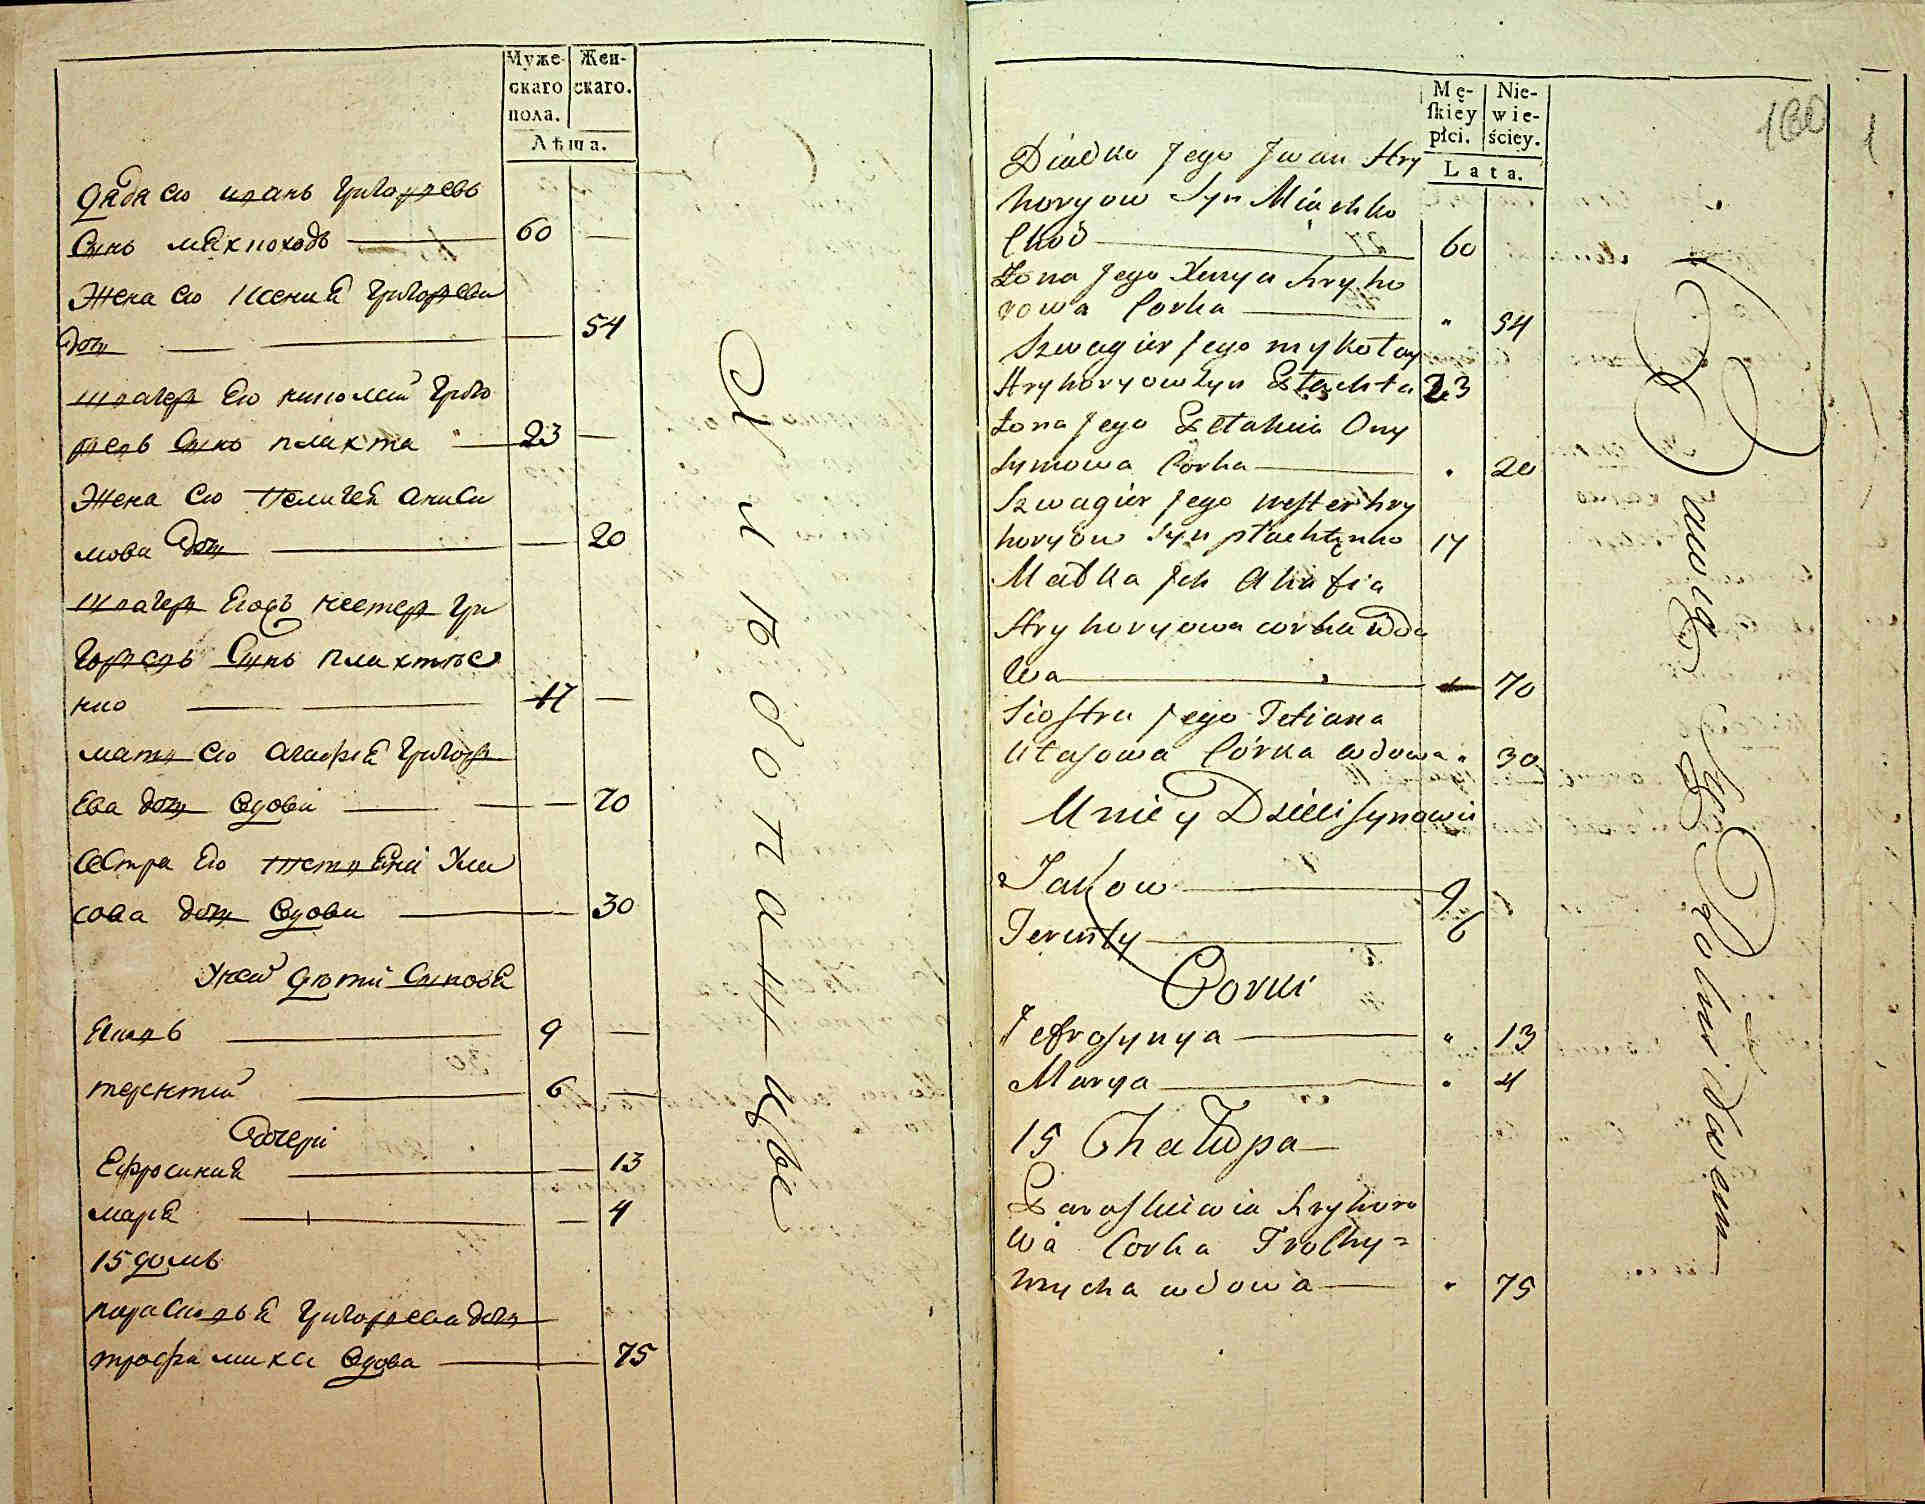 Муже- Жен-
скаго скаго.
пола.
Лѣта.
дядя его иванъ григорьевъ
Сынъ мякоходъ 60 —
Жена его Ксения григорьева
дочь — 54
швагер его николай григо
ревъ Сынъ плахта 23 —
Жена его Пелагея аниси
мова дочь — 20
швагер его нестер гри
горевъ Сынъ плахтѣе
нко 17 —
мать его агафия григор
ева дочь вдова — 70
сестра его тетяна ула
сова дочь вдова — 30
у ней дѣти Синовя
Яковъ 9 —
терентий 6 —
дочери
Ефросиния — 13
маря — 4
15 домъ
парасковья григорьева дочь
трофимиха вдова — 75
Mę- Nie-
skiey wie-
płci. ściey.
Lata.
160
Diadko Jego Jwan Hry
horyow Syn Miachko
Chod 60
Żona Jego Xenya hryho
rowa Corka " 54
Szwagier Jego mykołay
Hryhoryow Syn Płachta 23
Żona Jego Pelahia Ony
symowa Corka " 20
Szwagier Jego nester hry
horyow Syn płachtęnko 17
Matka Jch Ahafia
Hryhoryowa corka wdo
wa " 70
Siostra Jego Tetiana
Ułasowa Córka wdowa " 30
U niey Dzieci synowie
Jakow 9
Terenty 6
Corki
Jefrosynya " 13
Marya " 4
15 Chałupa
Paraskiewia hryhoro
wa Corka Trochy=
mycha wdowa " 75